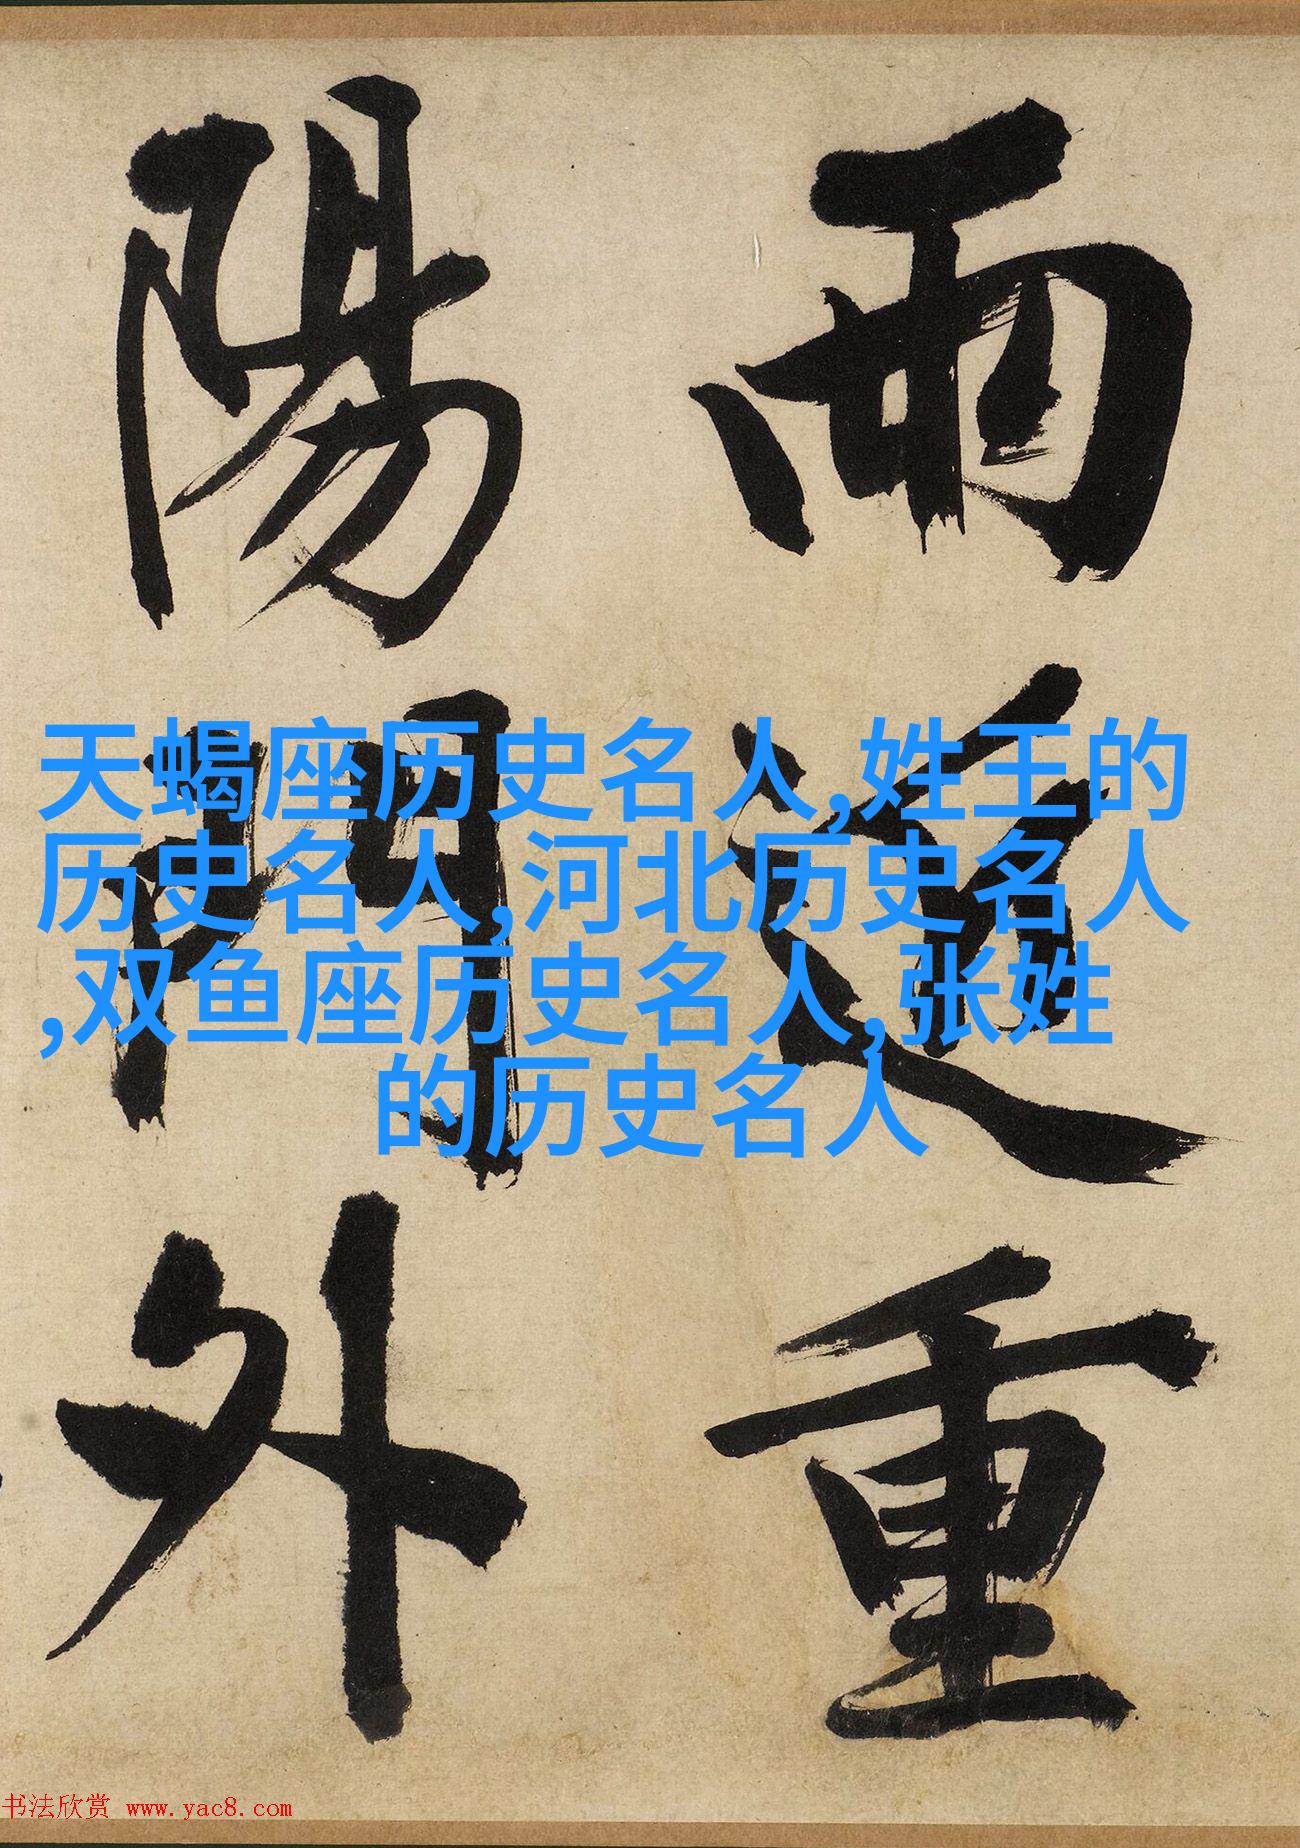 雨重
陽門外
天蝎座历史名人,姓王的
历史名人,河北历史名人
,双鱼座历史名人,张姓
的历史名人
书法欣赏 www.yac8.com